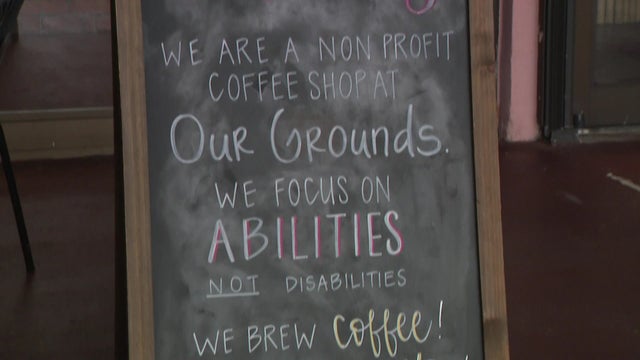 WE ARE A NON PROFIT
COFFEE SHOP AT
Our Grounds.
WE FOCUS ON
ABILITIES
NOT DISABILITIES
WE BREW coffee!